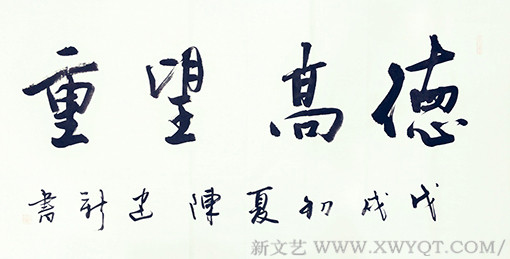 德高望重
戊戌初夏陳建新書
新文艺 WWW.XWYQT.COM/